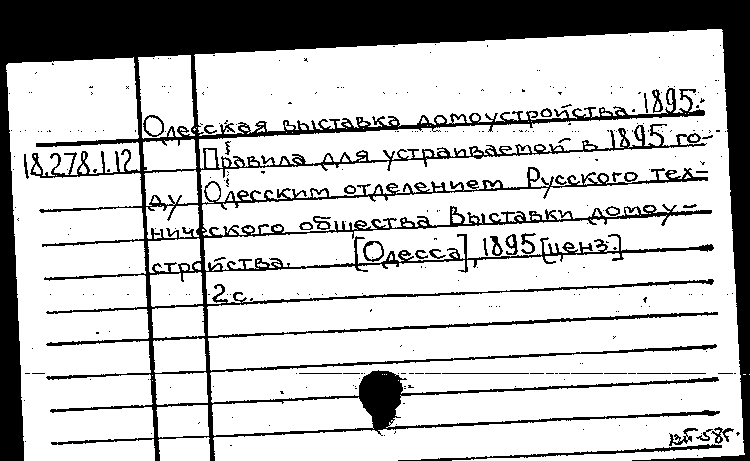 Одесская выставка домоустройства. 1895.
18.278.1.12. Правила для устраиваемой в 1895 го-
ду Одесским отделением Русского тех-
нического общества Выставки домоу-
стройства. [Одесса], 1895 [ценз.]
2 с.